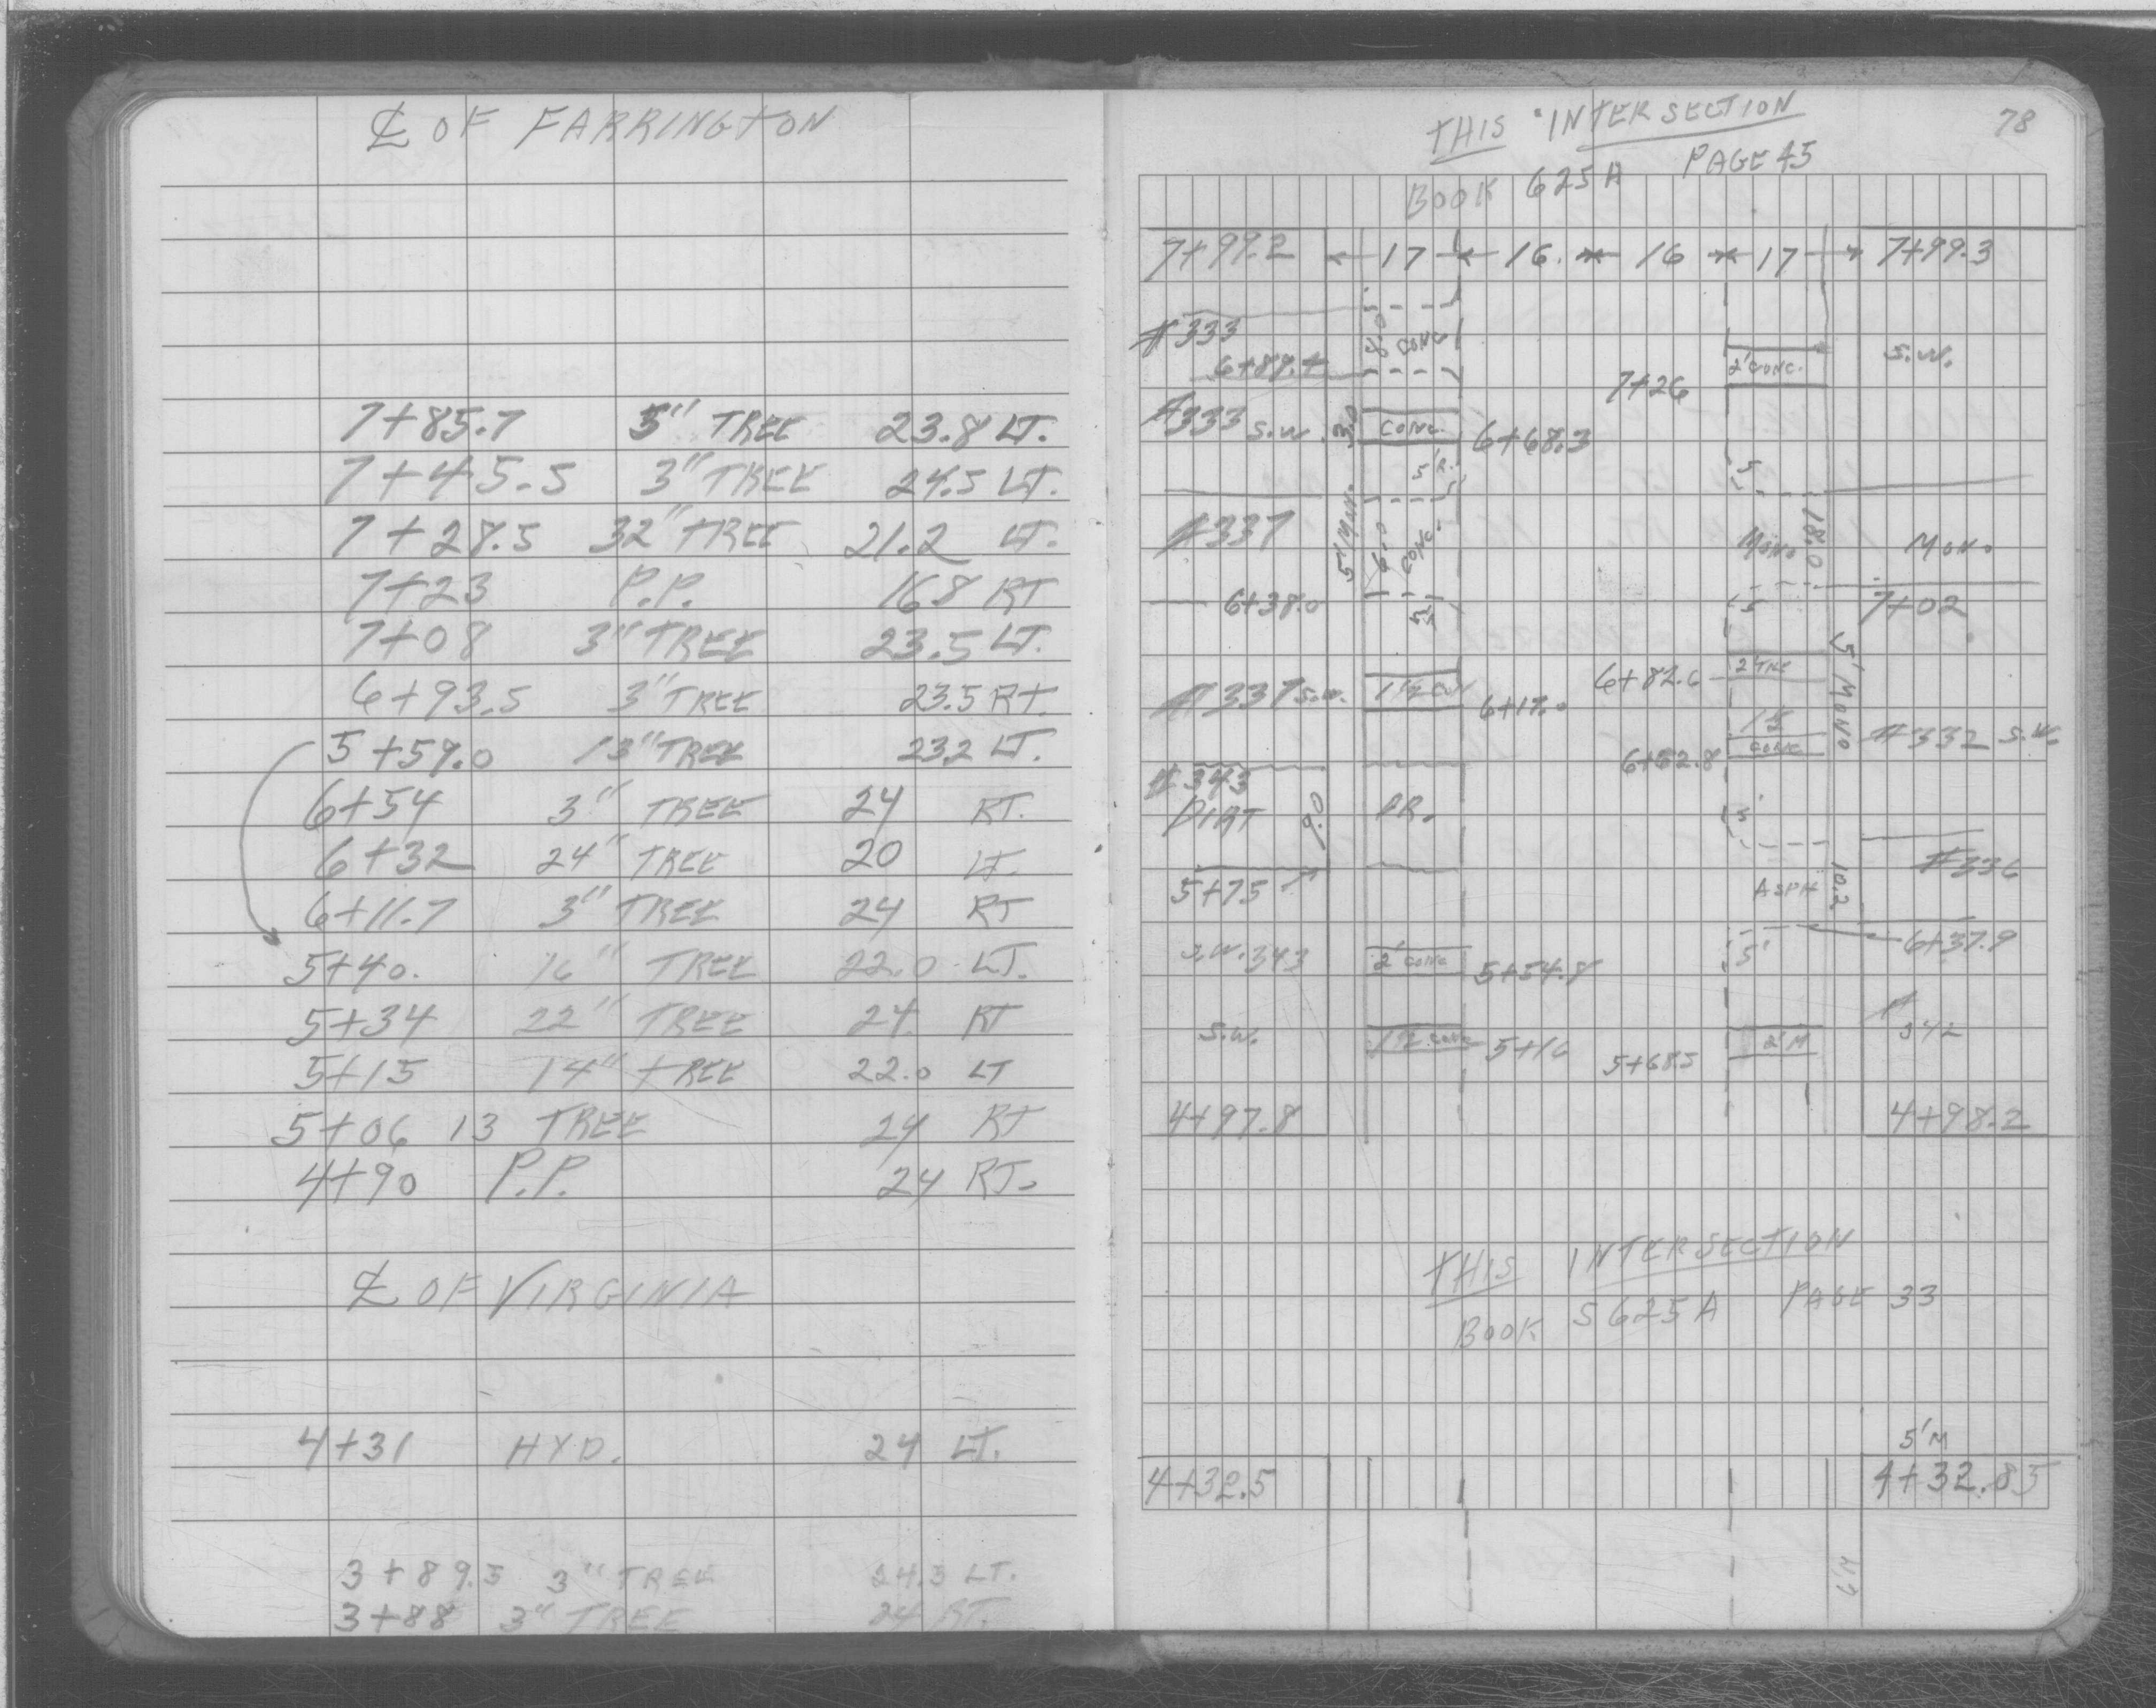 ℄ OF FARRINGTON
7+85.7 3" TREE 23.8 LT.
7+45.5 3" TREE 24.5 LT.
7+28.5 32" TREE 21.2 LT.
7+23 P.P. 16.8 RT
7+08 3" TREE 23.5 LT.
6+93.5 3" TREE 23.5 RT.
5+59.0 13" TREE 23.2 LT.
6+54 3" TREE 24 RT.
6+32 24" TREE 20 LT.
6+11.7 3" TREE 24 RT
5+40. 16" TREE 22.0 LT.
5+34 22" TREE 24. RT
5+15 14" TREE 22.0 LT
5+06 13 TREE 24 RT
4+90 P.P. 24 RT.
℄ OF VIRGINIA
4+31 HYD. 24 LT.
3+89.5 3" TREE 24.3 LT.
3+88 3" TREE 24 RT.
78
THIS INTERSECTION
BOOK 625A PAGE 45
7+99.2 17 16. 16 17 7+99.3
#333 CONC
6+89.4
2' CONC. S.W.
7+26
#333 S.W. 3.0 CONC. 6+68.3
5'R. 5'
#337 5' MON. 6.0 CONC. MONO 18.0 MONO.
6+38.0 5' 5' 7+02
#337 S.W. 1½ CON 6+17.0
6+82.6 2' TILE
5' MONO
1½ CONC #332 S.W.
6+62.8
#343
DIRT 9.0 DR. 5'
5+75
#336
ASPH 10.2
6+37.9
S.W. 343 2' CONC 5+54.8 5'
S.W. 1½ CONC 5+16
5+68.5 2' M # 342
4+97.8 4+98.2
THIS INTERSECTION
BOOK 5625A PAGE 33
5'M
4+32.5 4+32.85
6'M